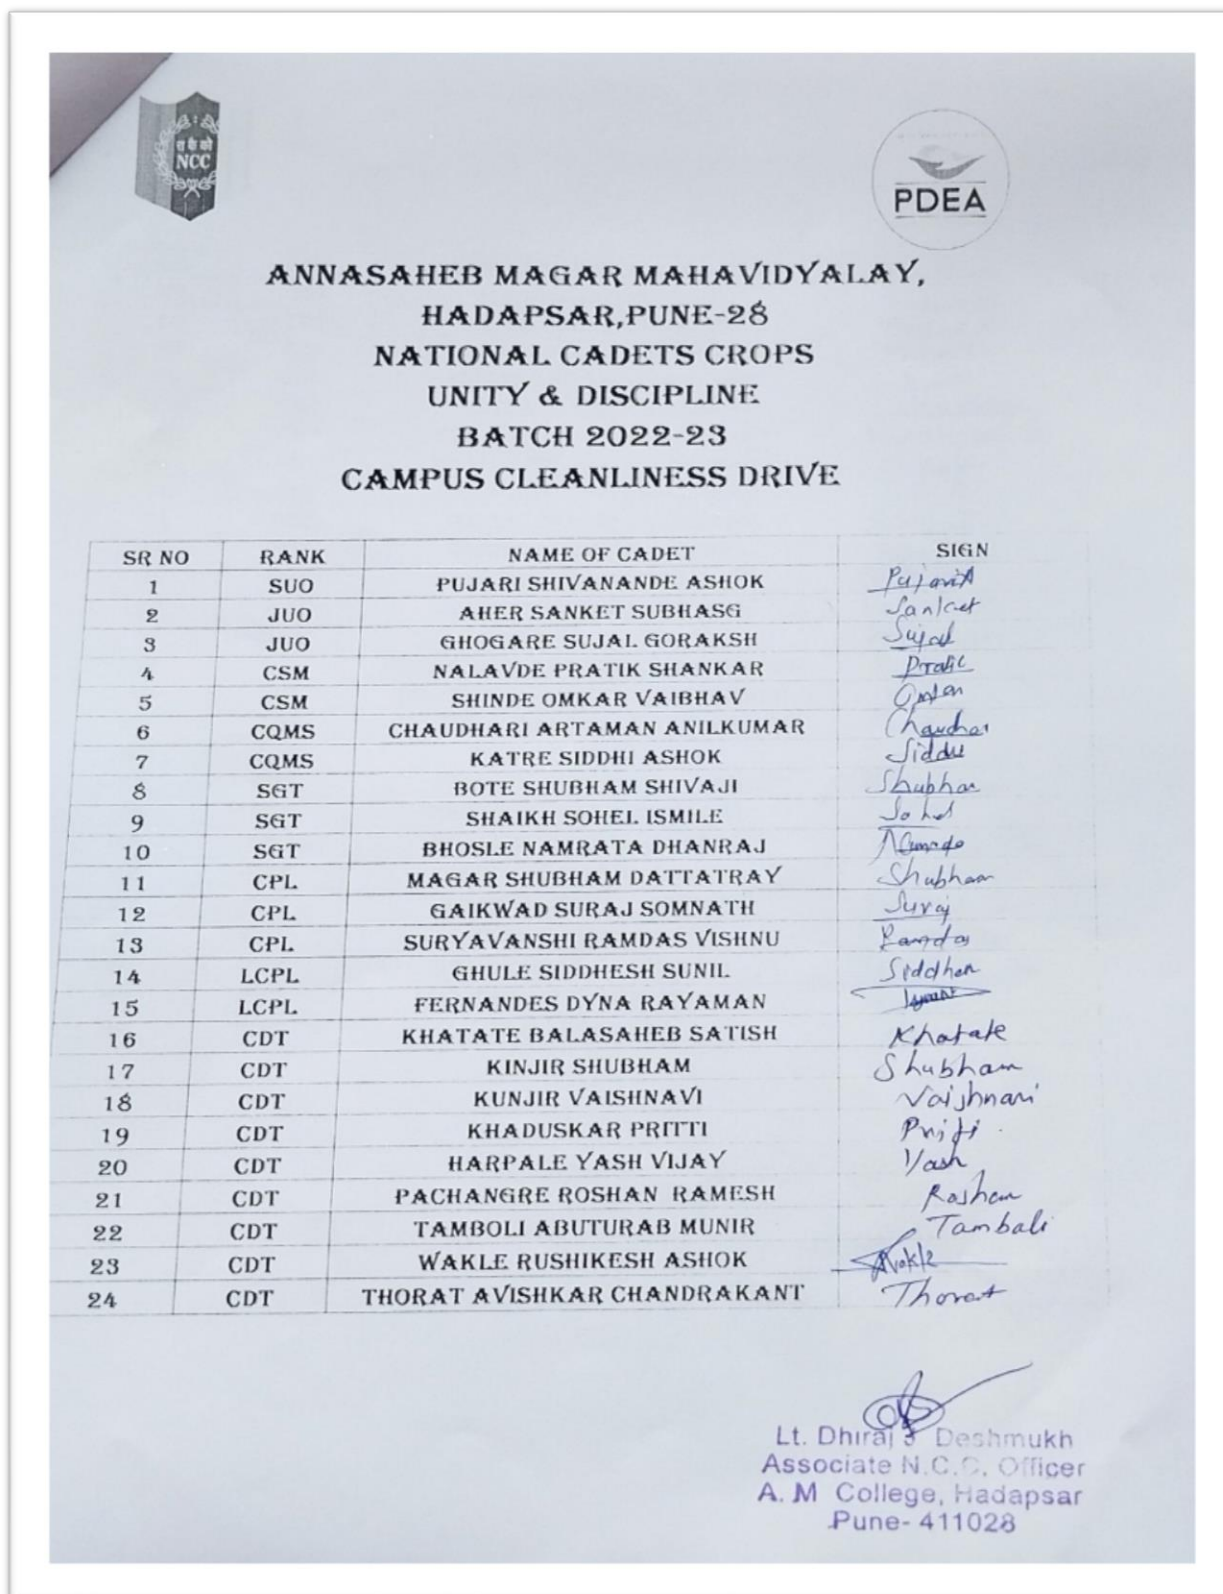 रा कै को
NCC
PDEA
ANNASAHEB MAGAR MAHAVIDYALAY,
HADAPSAR,PUNE-28
NATIONAL CADETS CROPS
UNITY & DISCIPLINE
BATCH 2022-23
CAMPUS CLEANLINESS DRIVE
SR NO RANK NAME OF CADET SIGN
1 SUO PUJARI SHIVANANDE ASHOK
2 JUO AHER SANKET SUBHASG Sanket
3 JUO GHOGARE SUJAL GORAKSH Sujal
4 CSM NALAVDE PRATIK SHANKAR Pratik
5 CSM SHINDE OMKAR VAIBHAV
6 CQMS CHAUDHARI ARTAMAN ANILKUMAR
7 CQMS KATRE SIDDHI ASHOK
8 SGT BOTE SHUBHAM SHIVAJI
9 SGT SHAIKH SOHEL ISMILE
10 SGT BHOSLE NAMRATA DHANRAJ
11 CPL MAGAR SHUBHAM DATTATRAY Shubham
12 CPL GAIKWAD SURAJ SOMNATH Suraj
13 CPL SURYAVANSHI RAMDAS VISHNU Ramdas
14 LCPL GHULE SIDDHESH SUNIL
15 LCPL FERNANDES DYNA RAYAMAN
16 CDT KHATATE BALASAHEB SATISH Khatate
17 CDT KINJIR SHUBHAM Shubham
18 CDT KUNJIR VAISHNAVI Vaishnavi
19 CDT KHADUSKAR PRITTI Priti
20 CDT HARPALE YASH VIJAY Yash
21 CDT PACHANGRE ROSHAN RAMESH Roshan
22 CDT TAMBOLI ABUTURAB MUNIR Tamboli
23 CDT WAKLE RUSHIKESH ASHOK
24 CDT THORAT AVISHKAR CHANDRAKANT Thorat
Lt. Dhiraj J Deshmukh
Associate N.C.C. Officer
A. M College, Hadapsar
Pune- 411028